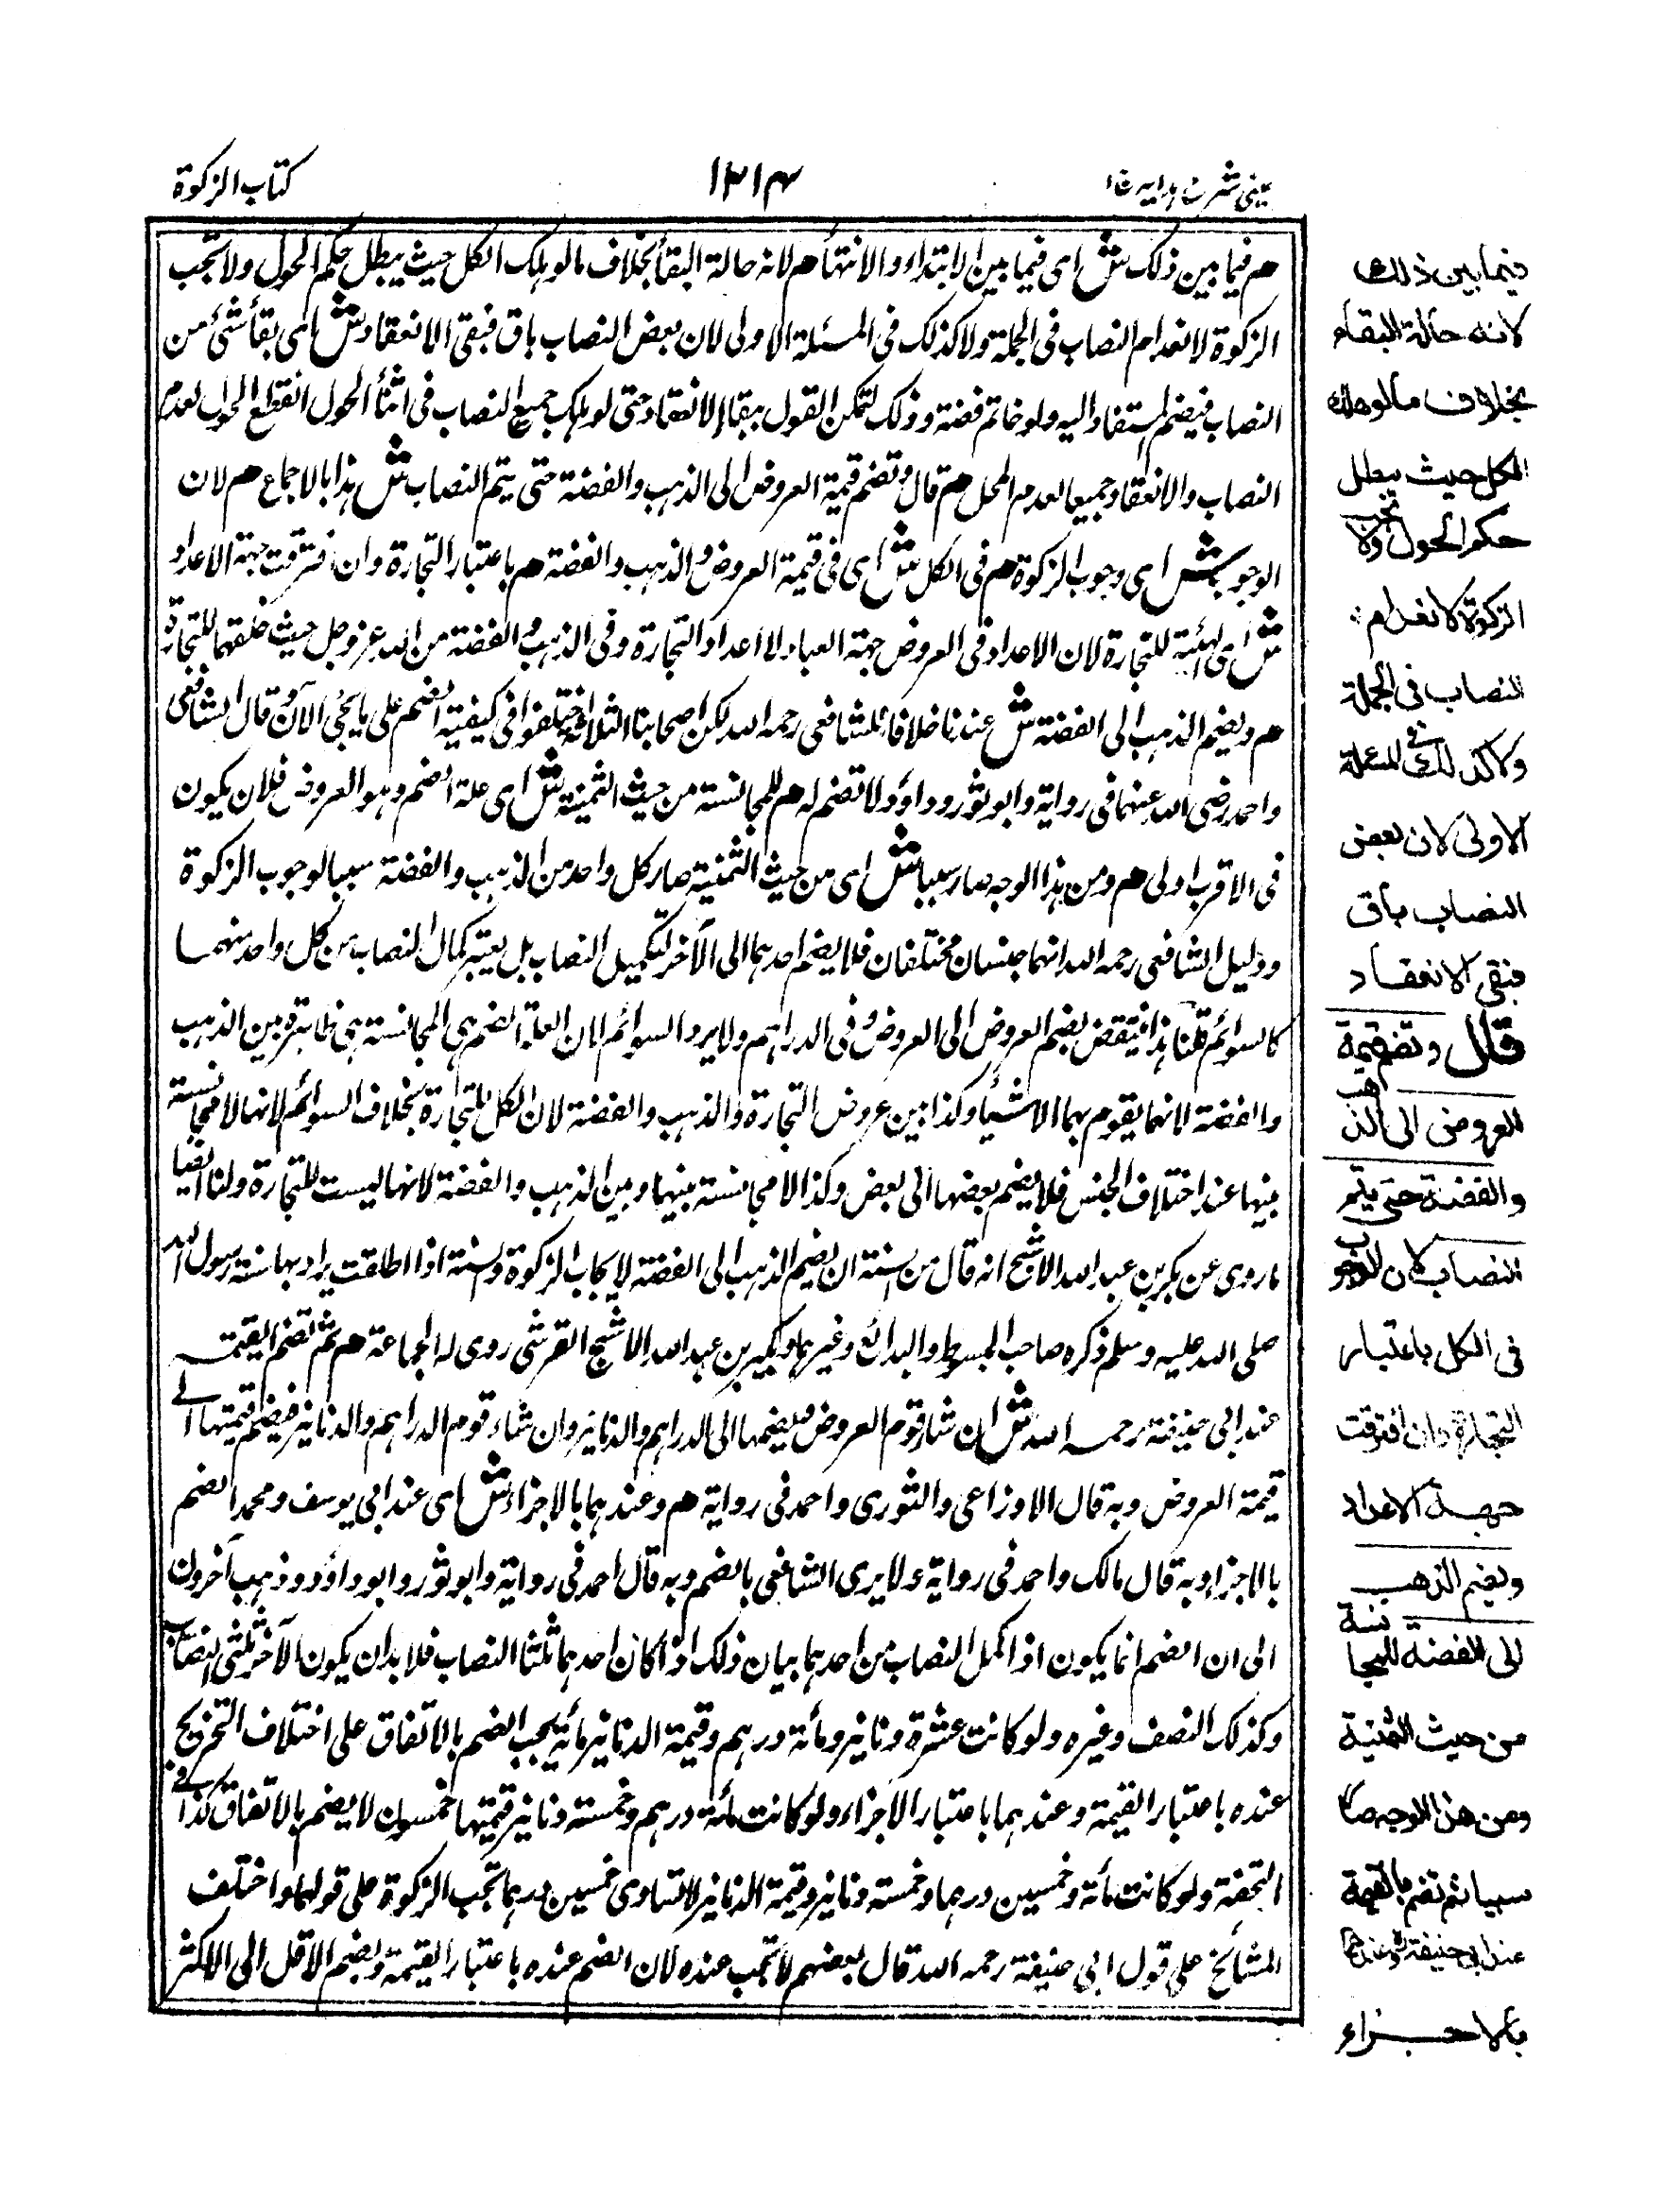 عینی شرح ہدایہ ج ۱
۱۳۱۴
کتاب الزکوة
هم فیما بین ذلک ش ای فیما بین الابتداء والانتهاء هم لانه حالة البقاء بخلاف ما لو هلک الکل حیث یبطل حکم الحول ولا تجب
الزکوة لانعدام النصاب فی الجملة ولا کذلک فی المسئلة الاولی لان بعض النصاب باق فبقی الانعقاد ش ای بقاء شئ من
النصاب فیضم المستفاد الیه ولو خاتم فضة وذلک لتمکن القول ببقاء الانعقاد حتی لو هلک جمیع النصاب فی اثناء الحول انقطع الحول لعدم
النصاب والانعقاد جمیعا لعدم المحل هم قال وتضم قیمة العروض الی الذهب والفضة حتی یتم النصاب ش هذا بالاجماع هم لان
الوجوب ش ای وجوب الزکوة هم فی الکل ش ای فی قیمة العروض والذهب والفضة هم باعتبار التجارة وان افترقت جهة الاعداد
ش ای لهیئة للتجارة لان الاعداد فی العروض جهة العباد لا اعداد التجارة وفی الذهب والفضة من الله عز وجل حیث خلقهما للتجارة
هم ویضم الذهب الی الفضة ش عندنا خلافا للشافعی رحمه الله لکن اصحابنا الثلاثة اختلفوا فی کیفیة الضم علی ما یجئ الآن وقال الشافعی
واحمد رضی الله عنهما فی روایة وابو ثور وداؤد لا تضم له هم للمجانسة من حیث الثمنیة ش ای علة الضم وهو العروض فلان یکون
فی الاقرب اولی هم ومن هذا الوجه صار سببا ش ای من حیث الثمنیة صار کل واحد من الذهب والفضة سببا لوجوب الزکوة
ودلیل الشافعی رحمه الله انهما جنسان مختلفان فلا یضم احدهما الی الآخر لتکمیل النصاب بل یعتبر کمال النصاب من کل واحد منهما
کالسوائم قلنا هذا ینتقض بضم العروض الی العروض وفی الدراهم ولا یرد السوائم لان العلة الضم هی المجانسة هی ظاهرة بین الذهب
والفضة لانهما یقوم بهما الاشیاء وکذا بین عروض التجارة والذهب والفضة لان الکل للتجارة بخلاف السوائم لانها لا مجانسة
بینها عند اختلاف الجنس فلا یضم بعضها الی بعض وکذا لا مجانسة بینها وبین الذهب والفضة لانها لیست للتجارة ولنا ایضا
ما روی عن بکیر بن عبد الله الاشج انه قال من السنة ان یضم الذهب الی الفضة لایجاب الزکوة والسنة اذا اطلقت یراد بها سنة رسول الله
صلی الله علیه وسلم ذکره صاحب المبسوط والبدائع وغیرهما وبکیر بن عبد الله الاشج القرشی روی له الجماعة هم ثم تضم القیمة
عند ابی حنیفة رحمه الله ش ان شاء قوم العروض فیضمها الی الدراهم والدنانیر وان شاء قوم الدراهم والدنانیر فیضم قیمتها الی
قیمة العروض وبه قال الاوزاعی والثوری واحمد فی روایة هم وعندهما بالاجزاء ش ای عند ابی یوسف ومحمد الضم
بالاجزاء وبه قال مالک واحمد فی روایة ولا یری الشافعی بالضم وبه قال احمد فی روایة وابو ثور وابو داؤد وذهب آخرون
الی ان الضم انما یکون اذا کمل النصاب من احدهما بیان ذلک اذا کان احدهما ثلثا النصاب فلا بد ان یکون الآخر ثلثی النصاب
وکذلک النصف وغیره ولو کانت عشرة دنانیر ومأة درهم وقیمة الدنانیر مأة یجب الضم بالاتفاق علی اختلاف التخریج
عنده باعتبار القیمة وعندهما باعتبار الاجزاء ولو کانت مأة درهم وخمسة دنانیر قیمتها خمسون لا یضم بالاتفاق کذا فی
التحفة ولو کانت مأة وخمسین درهما وخمسة دنانیر وقیمة الدنانیر لا تساوی خمسین درهما تجب الزکوة علی قولهما واختلف
المشائخ علی قول ابی حنیفة رحمه الله قال بعضهم لا تجب عنده لان الضم عنده باعتبار القیمة ویضم الاقل الی الاکثر
فیما بین ذلک
لانه حالة البقاء
بخلاف ما لو هلک
الکل حیث یبطل
حکم الحول ولا تجب
الزکوة لانعدام
النصاب فی الجملة
ولا کذلک فی المسئلة
الاولی لان بعض
النصاب باق
فبقی الانعقاد
قال وتضم قیمة
العروض الی الذهب
والفضة حتی یتم
النصاب لان الوجوب
فی الکل باعتبار
التجارة وان افترقت
جهة الاعداد
ویضم الذهب
الی الفضة للمجانسة
من حیث الثمنیة
ومن هذا الوجه صار
سببا ثم تضم بالقیمة
عند ابی حنیفة وعندهما
بالاجزاء